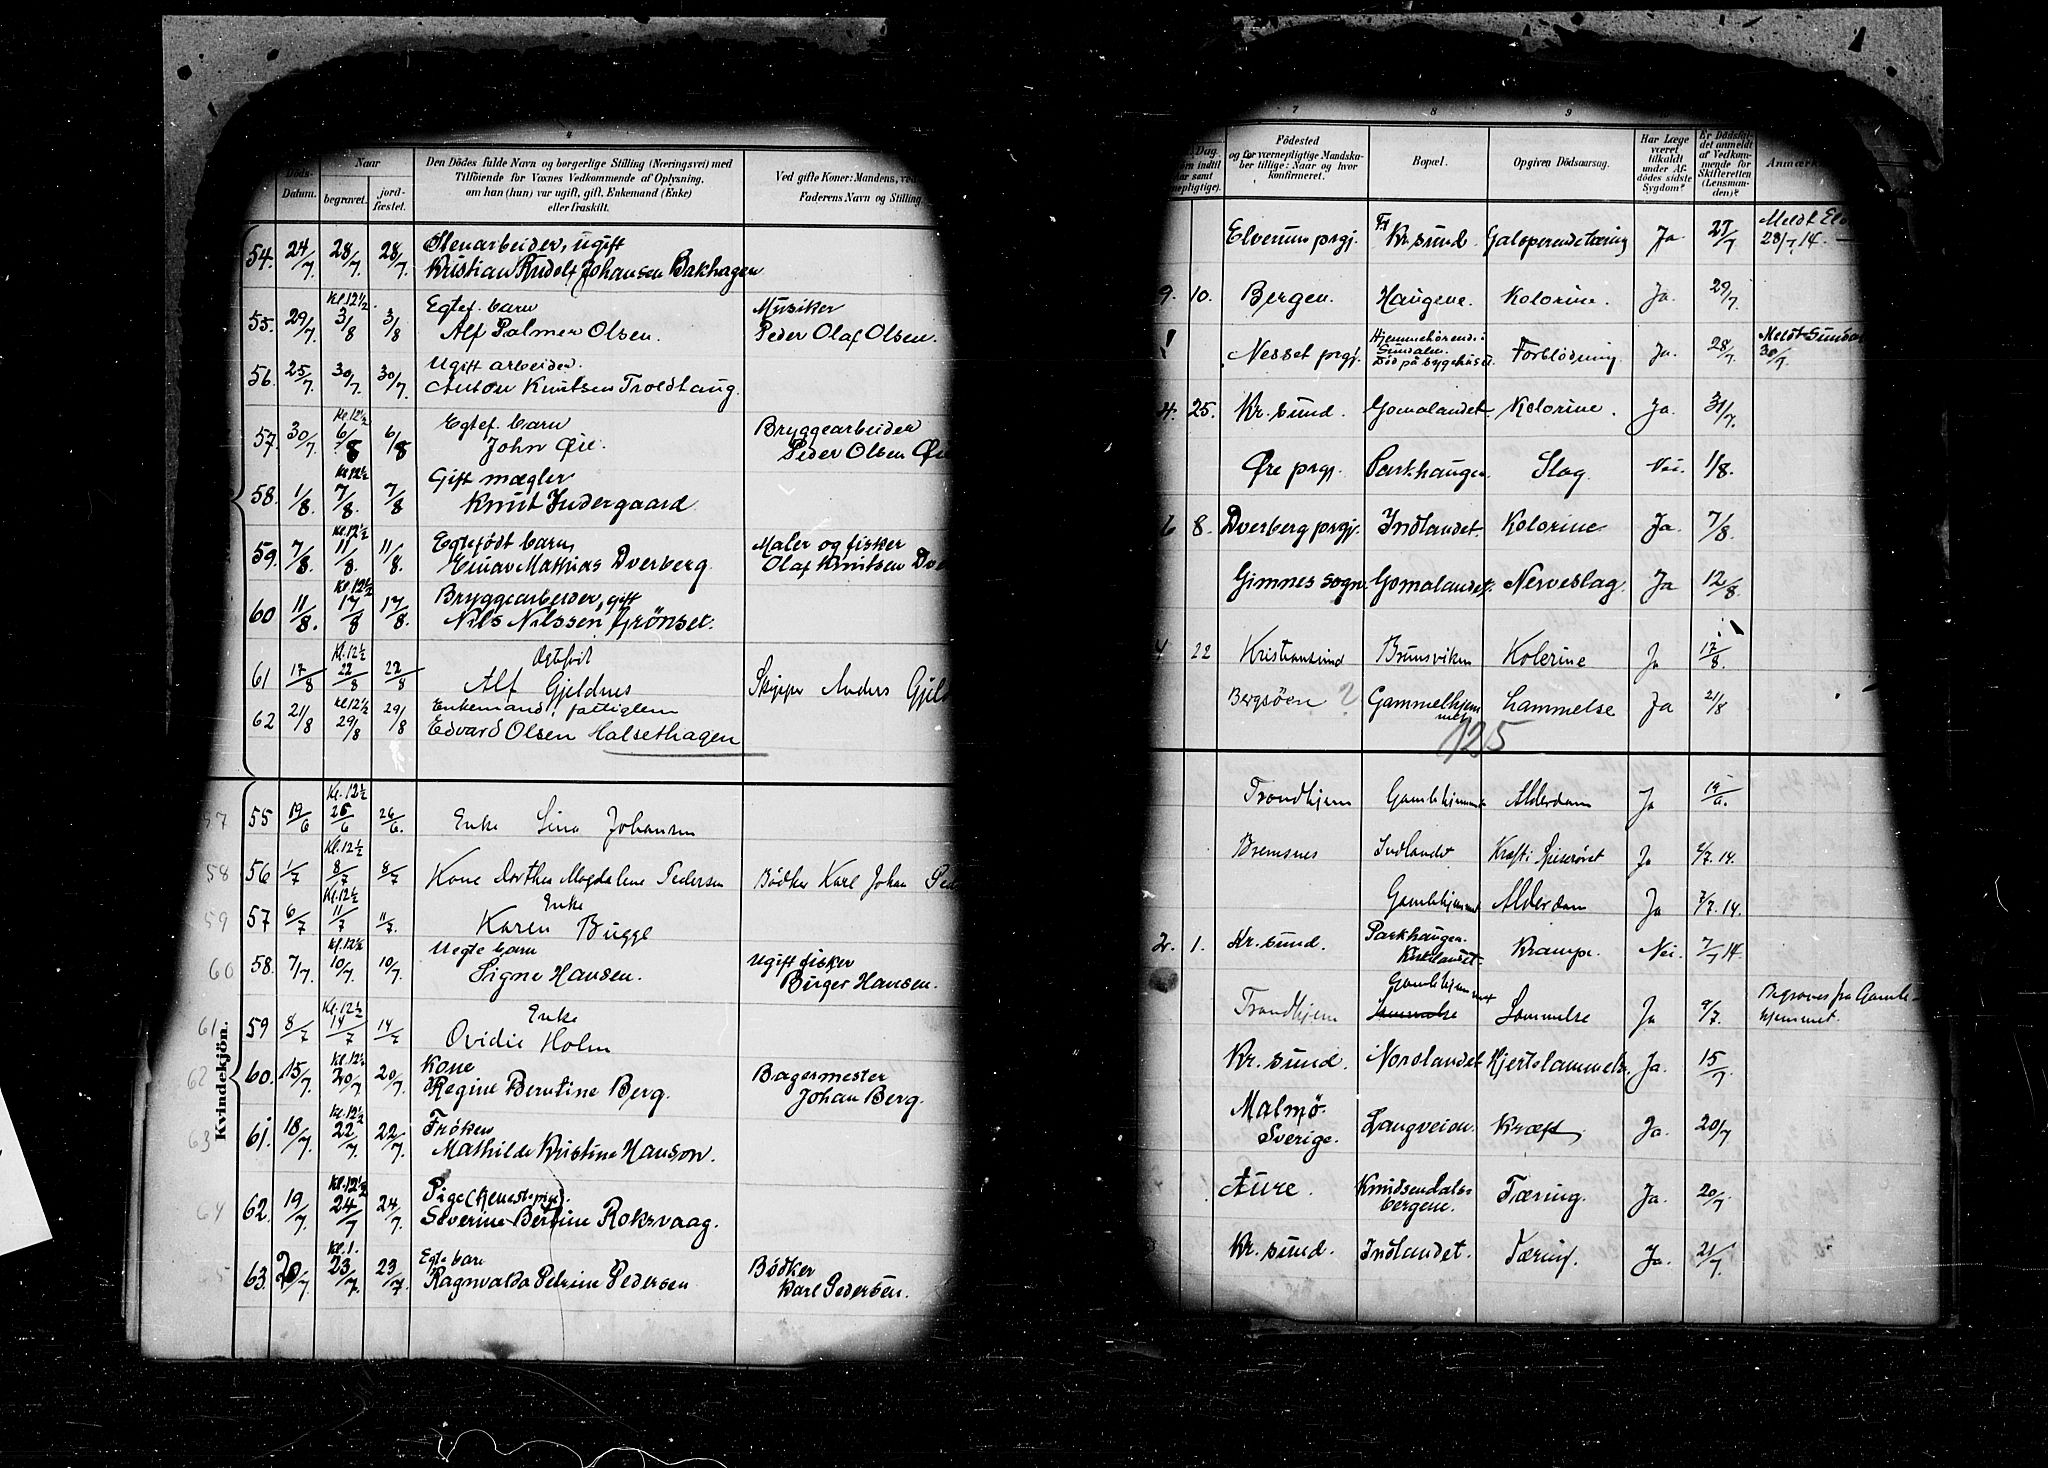 4
Döds-
Datum.
Naar
begravet.
jord-
fæstet.
Den Dödes fulde Navn og borgerlige Stilling (Næringsvei) med
Tilföiende for Voxnes Vedkommende af Oplysning,
om han (hun) var ugift, gift, Enkemand (Enke)
eller fraskilt.
Ved gifte Koner: Mandens, ved
Faderens Navn og Stilling.
54. 24/7 28/7 28/7 Stenarbeider, ugift
Kristian Rudolf Johansen Bakhagen
Kl. 12½
55. 29/7 3/8 3/8 Egtef. barn Musiker
Alf Palmer Olsen. Peder Olaf Olsen.
56. 25/7 30/7 30/7 Ugift arbeider.
Anton Knutsen Troedhaug
Kl. 12½
57. 30/7 6/8 6/8 Egtef. barn Bryggearbeider
John Øie. Peder Olsen Øie
Kl. 12½
58. 1/8 7/8 7/8 Gift mægler
Knut Indergaard
Kl. 12½
59. 7/8 11/8 11/8 Egtefödt barn Maler og fisker
Einar Mathias Dverberg Olaf Knutsen Dve
Kl. 12½
60 11/8. 17/8 17/8. Bryggearbeider, gift
Nils Nilssen Grönset.
Kl. 12½
61 17/8 22/8 22/8
Alf Gjeldnes Skipper Anders Gjel
Kl. 12½
62 21/8 29/8 29/8 Enkemand, fattiglem
Edvard Olsen Halsethagen
Kvindekjön.
Kl. 12½
57 55 19/6 26/6 26/6. Enke Lina Johansen
Kl. 12½
58 56 1/7 8/7 8/7 Kone Dorthea Magdalene Pedersen Bödker Karl Johan Ped
Kl. 12½
59 57 6/7 11/7 11/7. Enke
Karen Bugge
Kl. 12½
60 58. 7/7 10/7. 10/7. Uegte barn Ugift fisker
Signe Hansen. Birger Hansen.
Kl. 12½
61 59 8/7 14/7 14/7 Enke
Ovidie Holm
Kl. 12½
62 60. 15/7 20/7. 20/7. Kone Bagermester
Regine Berntine Berg. Johan Berg.
Kl. 12½
63 61. 18/7. 22/7. 22/7. Fröken
Mathilde Kristine Hanson.
Kl. 12½
64 62. 19/7. 24/7 24/7. Pige (tjenestepige).
Severine Bertine Roksvaag.
Kl. 1.
63. 20/7. 23/7. 23/7. Egte barn Bödker
Ragnvalda Petrine Pedersen Karl Pedersen.
7 8 9
Födested
og for værnepligtige Mandska-
ber tillige: Naar og hvor
konfirmeret.
Bopæl.
Opgiven Dödsaarsag.
Har Læge
været
tilkaldt
under Af-
dödes sidste
Sygdom?
Er Dödsfal-
det anmeldt
af Vedkom-
mende for
Skifteretten
(Lensman-
den)?
Anmærk
Elverum prgj. Kr. sund. Galoperende tæring Ja 27/7 Meldt El
28/7 14.
9. 10. Bergen. Haugene. Kolorine. Ja. 29/7.
Nesset prgj. Hjemmehörende i
Sundalen.
Död på sygehuset. Forblödning. Ja. 28/7. Meldt Sundal
30/7.
4. 25. Kr. sund. Gomalandet. Kolorine. Ja. 31/7.
Øre prgj. Parkhaugen. Slag. Nei. 1/8.
6 8. Dverberg prgj. Indlandet. Kolorine Ja. 7/8.
Gimnes sogn. Gomalandet. Nerveslag. Ja 12/8.
4 22 Kristiansund Brunsviken Kolerine Ja 17/8.
Bergsöen ? Gammelhjem
met Lammelse Ja 21/8
125
Trondhjem Gamlehjemmet Alderdom Ja 19/6.
Bremsnes Indlandet Kræft i Spiserøret Ja 2/7. 14.
Gamlehjemmet Alderdom Ja 7/7. 14.
2. 1. Kr. sund. Parkhaugen.
Kirklandet. Krampe. Nei. 7/7 14.
Trondhjem Gamlehjemmet
Lammelse Lammelse Ja 9/7. Begraves fra Gamle-
hjemmet.
Kr. sund. Nordlandet Hjertelammelse. Ja. 15/7.
Malmø.
Sverige. Langveien. Kræft Ja. 20/7
Aure. Knudsendals
bergene. Tæring. Ja. 20/7
Kr. sund. Indlandet. Tæring. Ja. 21/7.